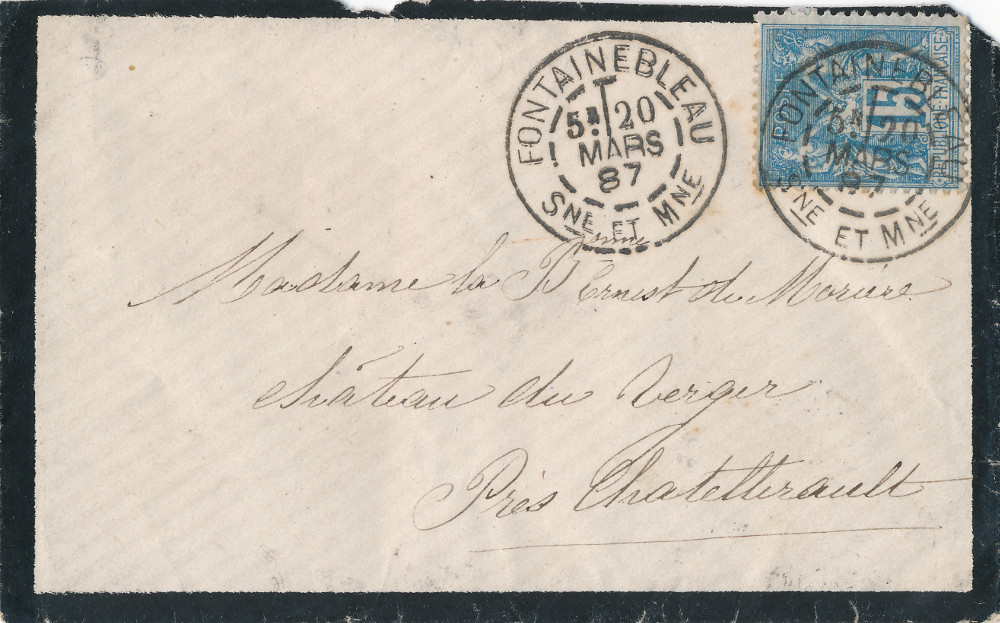 FONTAINEBLEAU
5E 20
MARS
87
SNE ET MNE
15
REPUBLIQUE FRANÇAISE
FONTAINEBLEAU
5E 20
MARS
87
SNE ET MNE
Madame la Bonne Ernest de Morière
château du Verger
Près Chatellerault